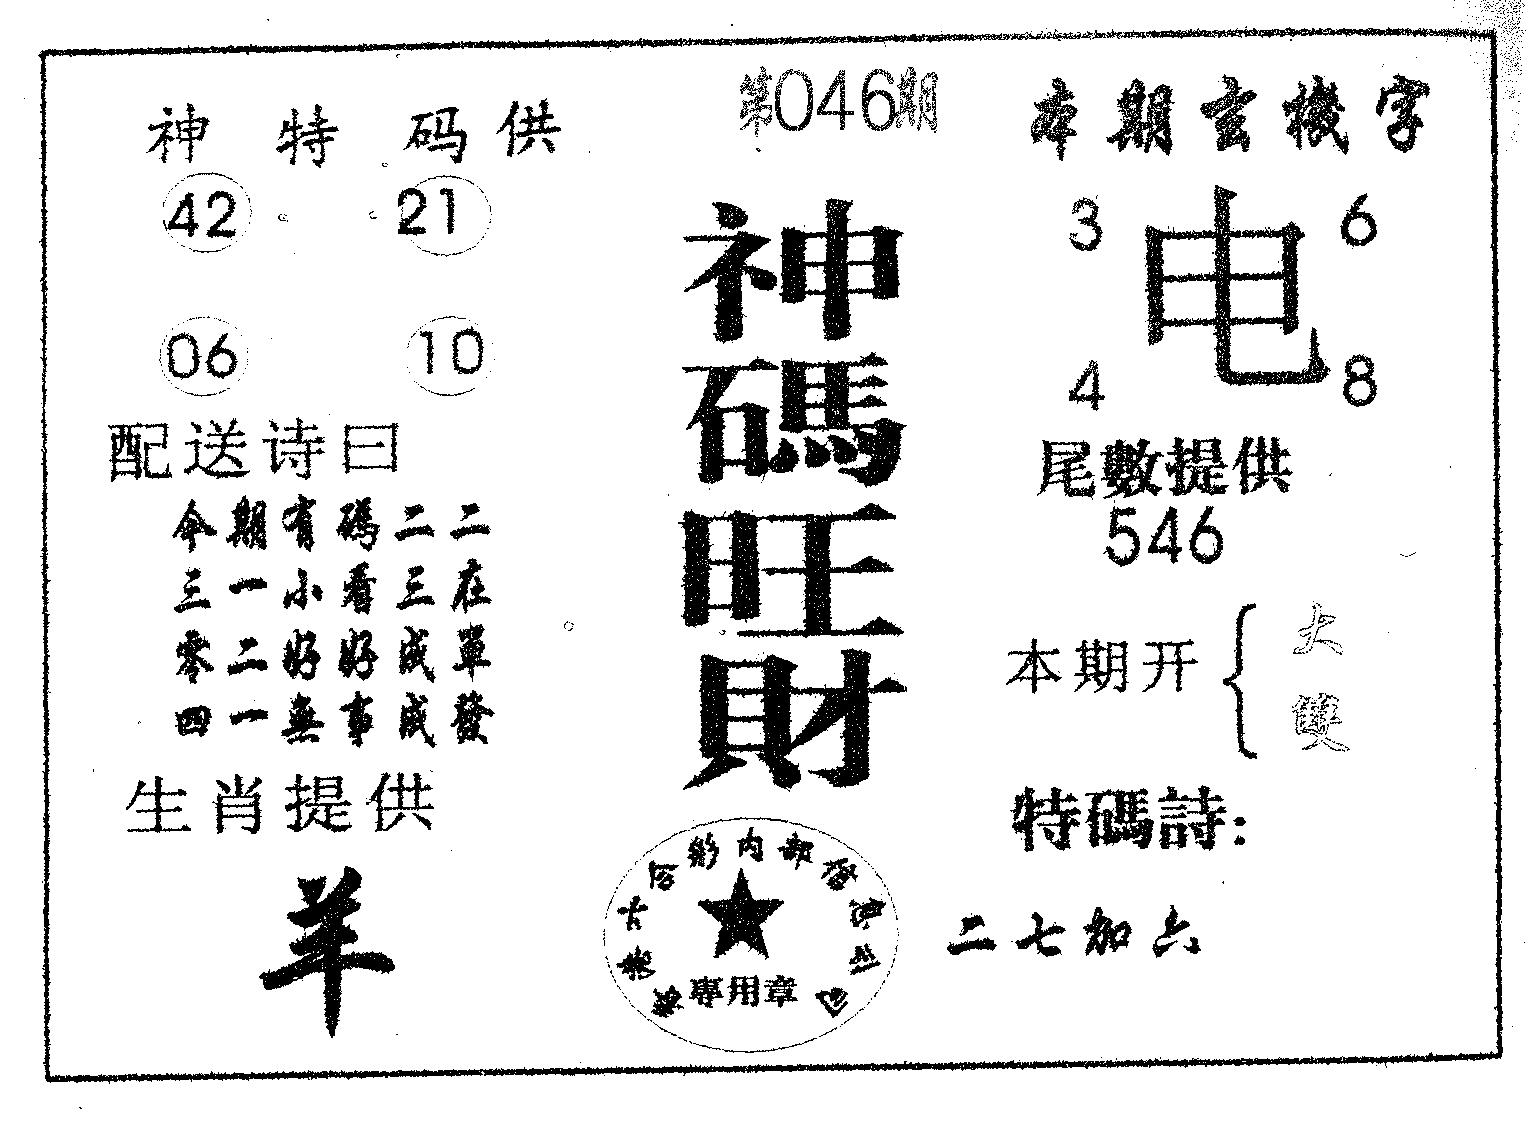 第046期
神特码供
42 21
06 10
配送诗曰
今期有碼二二
三一小看三在
零二好好成單
四一無事成發
生肖提供
羊
神
碼
旺
財
合彩內部
專用章
本期玄機字
3 6
电
4 8
尾數提供
546
本期开{
大
雙
特碼詩:
二七加六